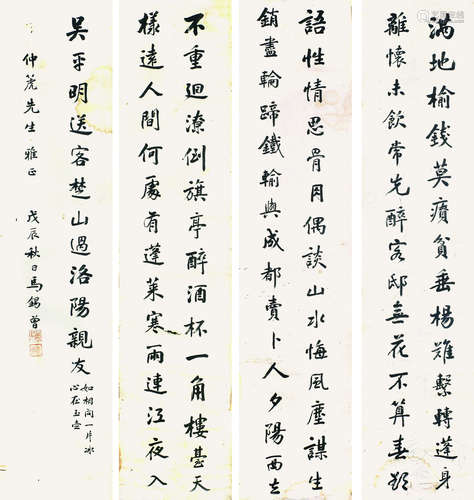 滿地榆錢莫療貧垂楊難繫轉蓬身
離懷未飲常先醉客邸無花不算春欲
語性情思骨肉偶談山水悔風塵謀生
銷盡輪蹄鐵輸與成都賣卜人夕陽西去
不重迴潦倒旗亭醉酒杯一角樓臺天
樣遠人間何處有蓬萊寒雨連江夜入
吳平明送客楚山過洛陽親友
如相問一片冰
心在玉壺
仲先生雅正 戊辰秋日馬錫曾